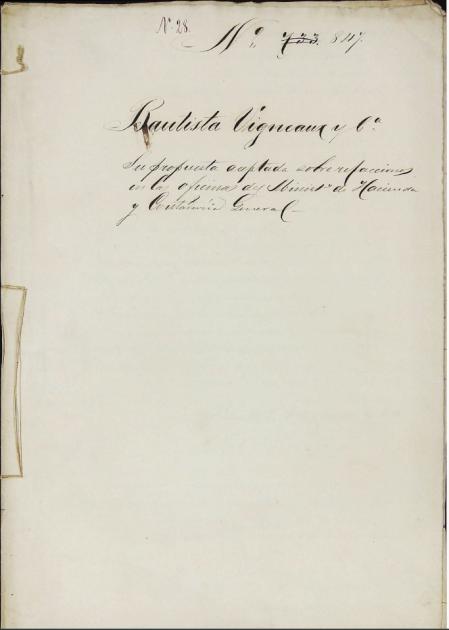 Nº 28.
Nº 733. 847.
Bautista Vigneaux y Cª
Su propuesta aceptada sobre refacciones
en las oficinas del Ministº de Hacienda
y Contaduría General